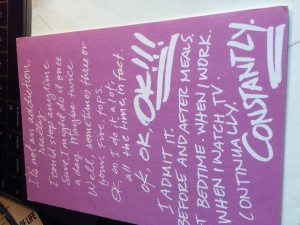 It's not an addiction,
really.
I could stop anytime
Sure, I might do it once
a day. Maybe twice.
Well, sometimes three or
four. Five, tops.
OK, so I do it a lot,
all the time, in fact.
OK, OK, OK!!!
I ADMIT IT.
BEFORE AND AFTER MEALS.
AT BEDTIME. WHEN I WORK.
WHEN I WATCH TV.
CONTINUALLY.
CONSTANTLY.
OF LIFE